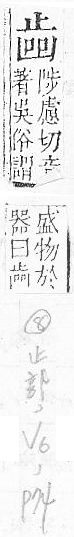 陟慮切音
著吳俗謂
盛物於
器曰
⑧止部, V6, p74